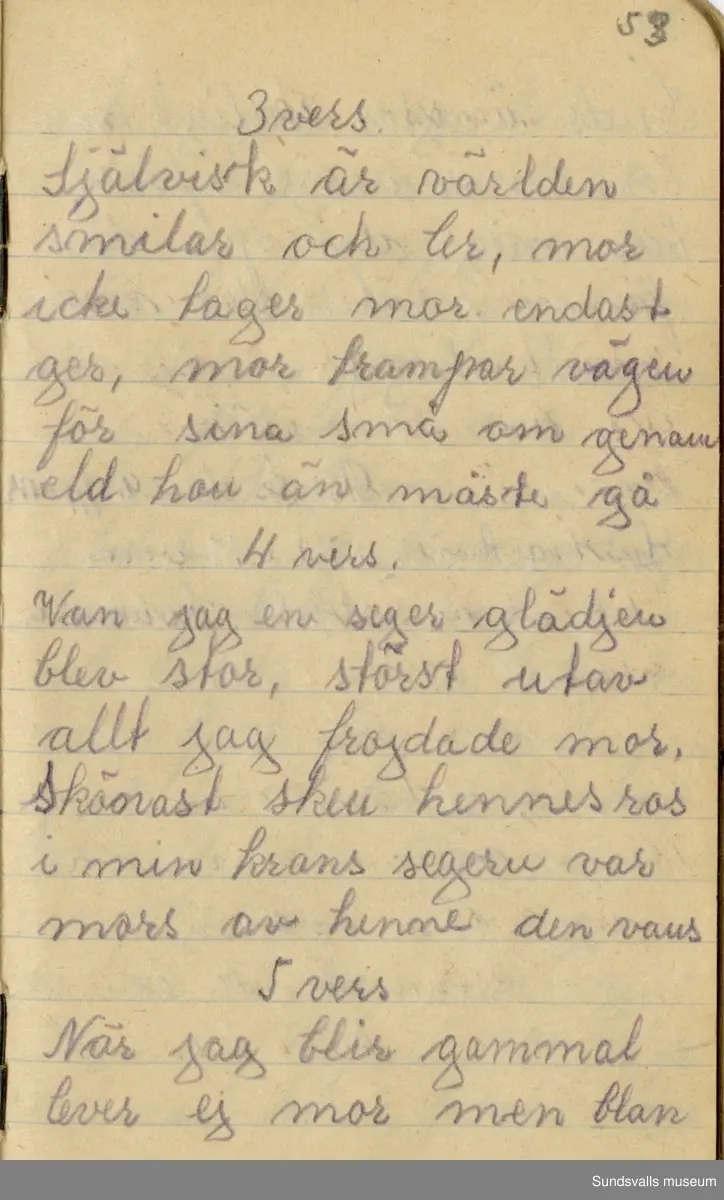 53
3 vers.
Självisk är världen
smilar och ler, mor
icke tager mor endast
ger, mor trampar vägen
för sina små om genom
eld hon än måste gå
4 vers.
Van jag en seger glädjen
blev stor, störst utav
allt jag frojdade mor,
skönast sken hennes ros
i min krans segern var
mors av henne den vans
5 vers
När jag blir gammal
lever ej mor men blan
Sundsvalls museum